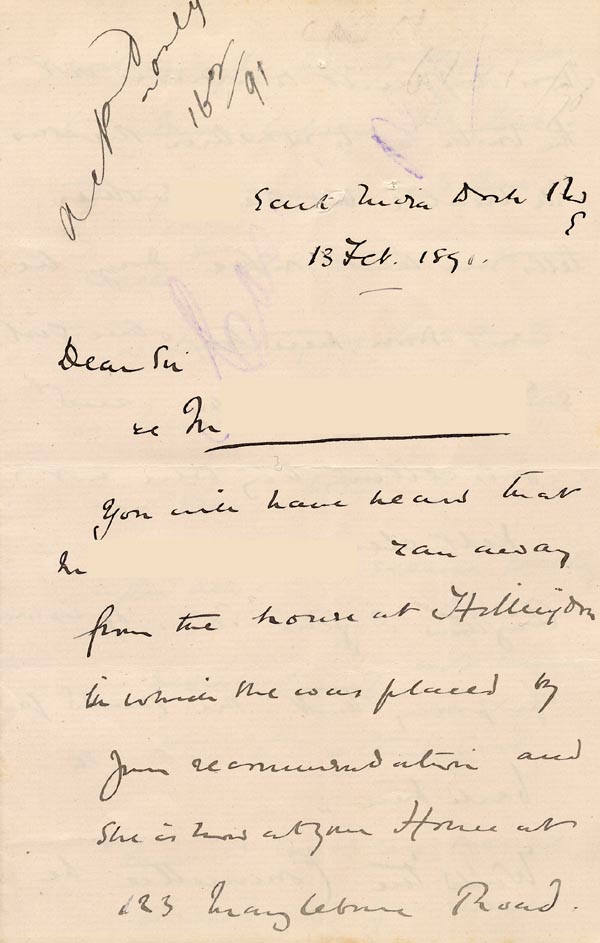 ackd
16/2/91
East India Dock Rd
E
13 Feb. 1891.
Dear Sir
re M
You will have heard that
M ran away
from the house at Hillingdon
in which she was placed by
your recommendation and
She is now at your Home at
123 Marylebone Road.